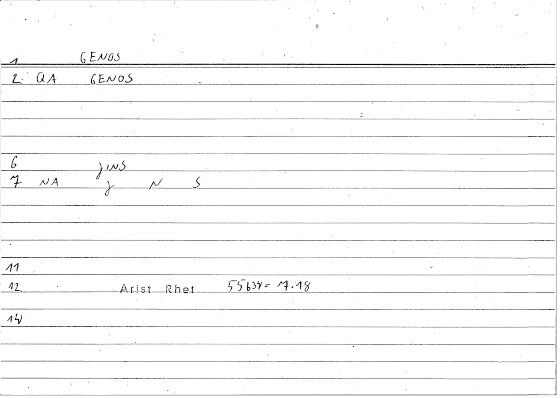 1 GENOS
2. QA GENOS
6 jINS
7 NA j N S
11
12 Arist Rhet 55b34= 7.18
14